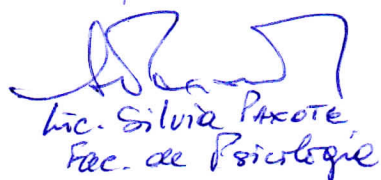 Lic. Silvia PAKOTE
Fac. de Psicologia